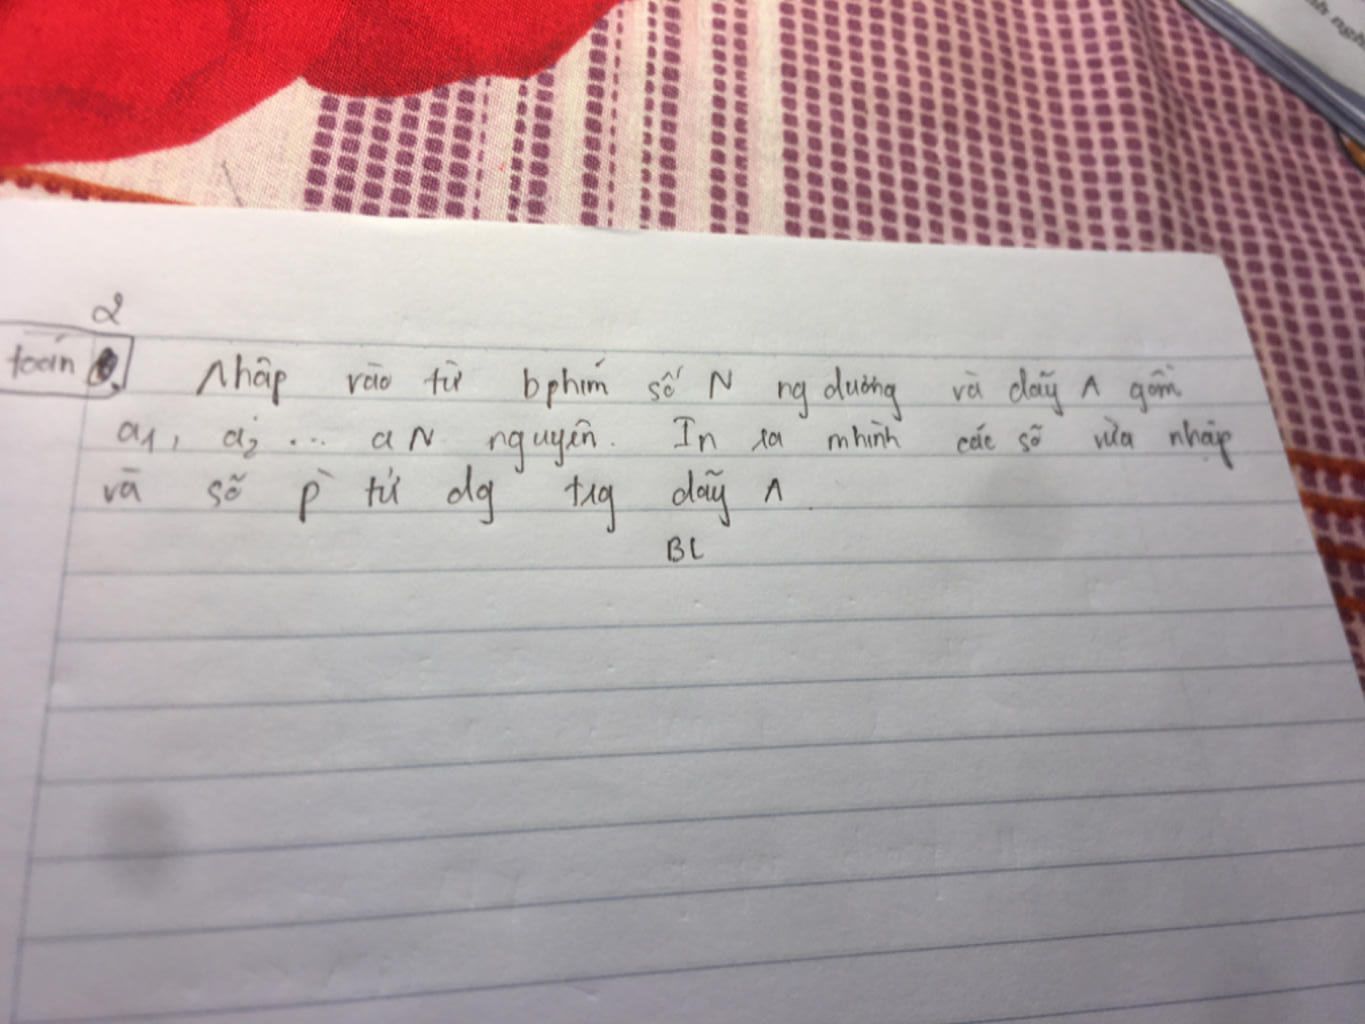 2
toán
Nhập vào từ bphím số N ng dương và dãy A gồm
a1, a2 ... aN nguyên. In ra mhình các số vừa nhập
và số p tử dg trg dãy A.
BL